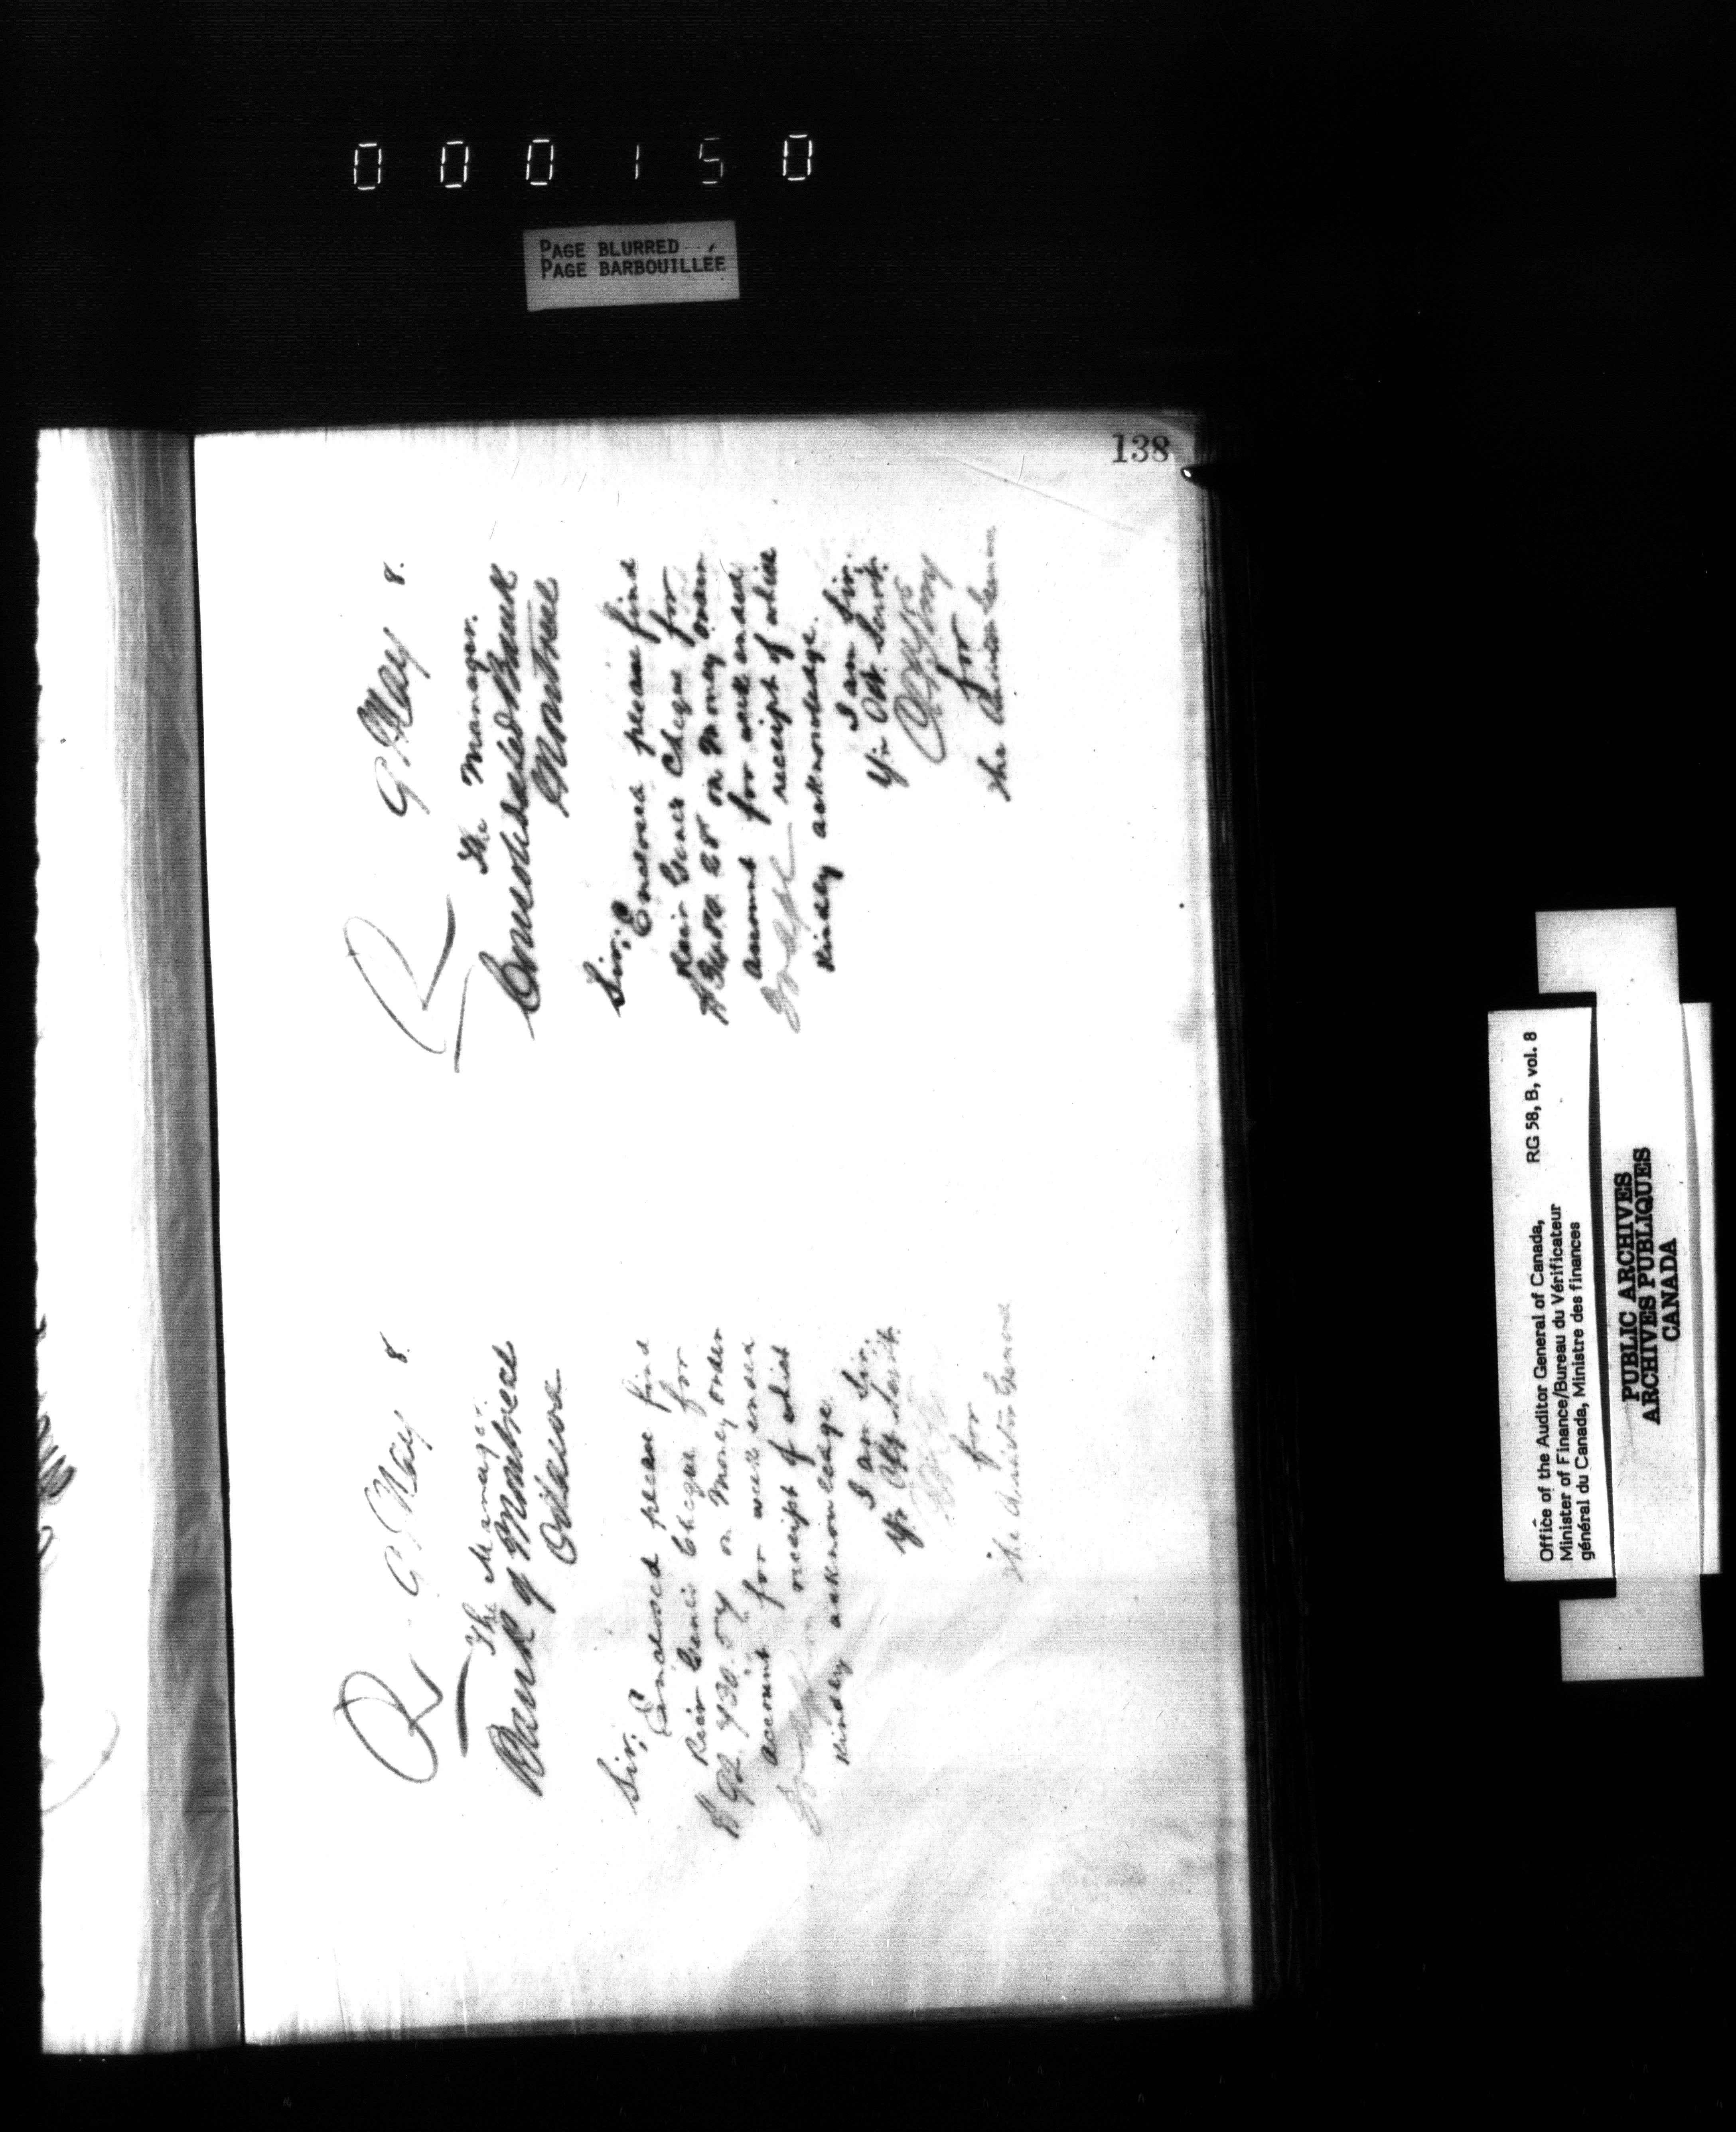 000150
PAGE BLURRED
PAGE BARBOUILLÉE
138
R 9 May 8.
The Manager.
Bank of Montreal
Ottawa
Sir;
Enclosed please find
Recr Genl's Cheque for
on Money order
account for week ended
receipt of which
kindly acknowledge.
I am Sir.
Yr Obt Servt.
for
The Auditor General
R 9 May 8.
The Manager.
Consolidated Bank
Montreal
Sir;
Enclosed please find
Recr Genl's Cheque for
on Money order
account for week ended
receipt of which
kindly acknowledge.
I am Sir.
Yr Obt Servt.
for
The Auditor General
Office of the Auditor General of Canada, RG 58, B, vol. 8
Minister of Finance/Bureau du Vérificateur
général du Canada, Ministre des finances
PUBLIC ARCHIVES
ARCHIVES PUBLIQUES
CANADA